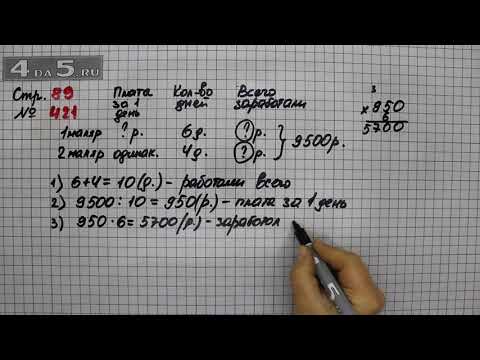 4 DA 5.RU
Стр. 89
№ 421
Плата за 1 день
Кол-во дней
Всего заработали
1 маляр ? р. 6 д. ? р.
2 маляр одинак. 4 д. ? р.
9500 р.
3
× 950
6
5700
1) 6+4=10 (д.) - работали всего
2) 9500 : 10 = 950 (р.) - плата за 1 день
3) 950 · 6 = 5700 (р.) - заработал